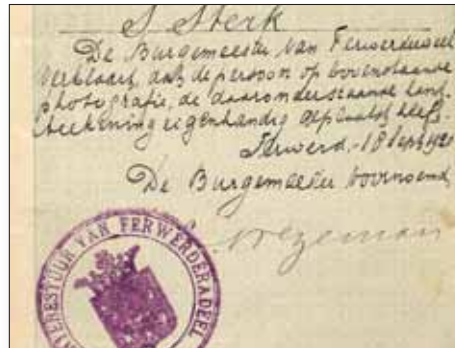 S Sterk
De Burgemeester van Ferwerderadeel
verklaart, dat de persoon op bovenstaande
photografie, de daaronderstaande hand-
teekening eigenhandig geplaatst heeft.
Ferwerd, 18 Sept 1920
De Burgemeester voornoemd
ENTEBESTUUR VAN FERWERDERADEEL